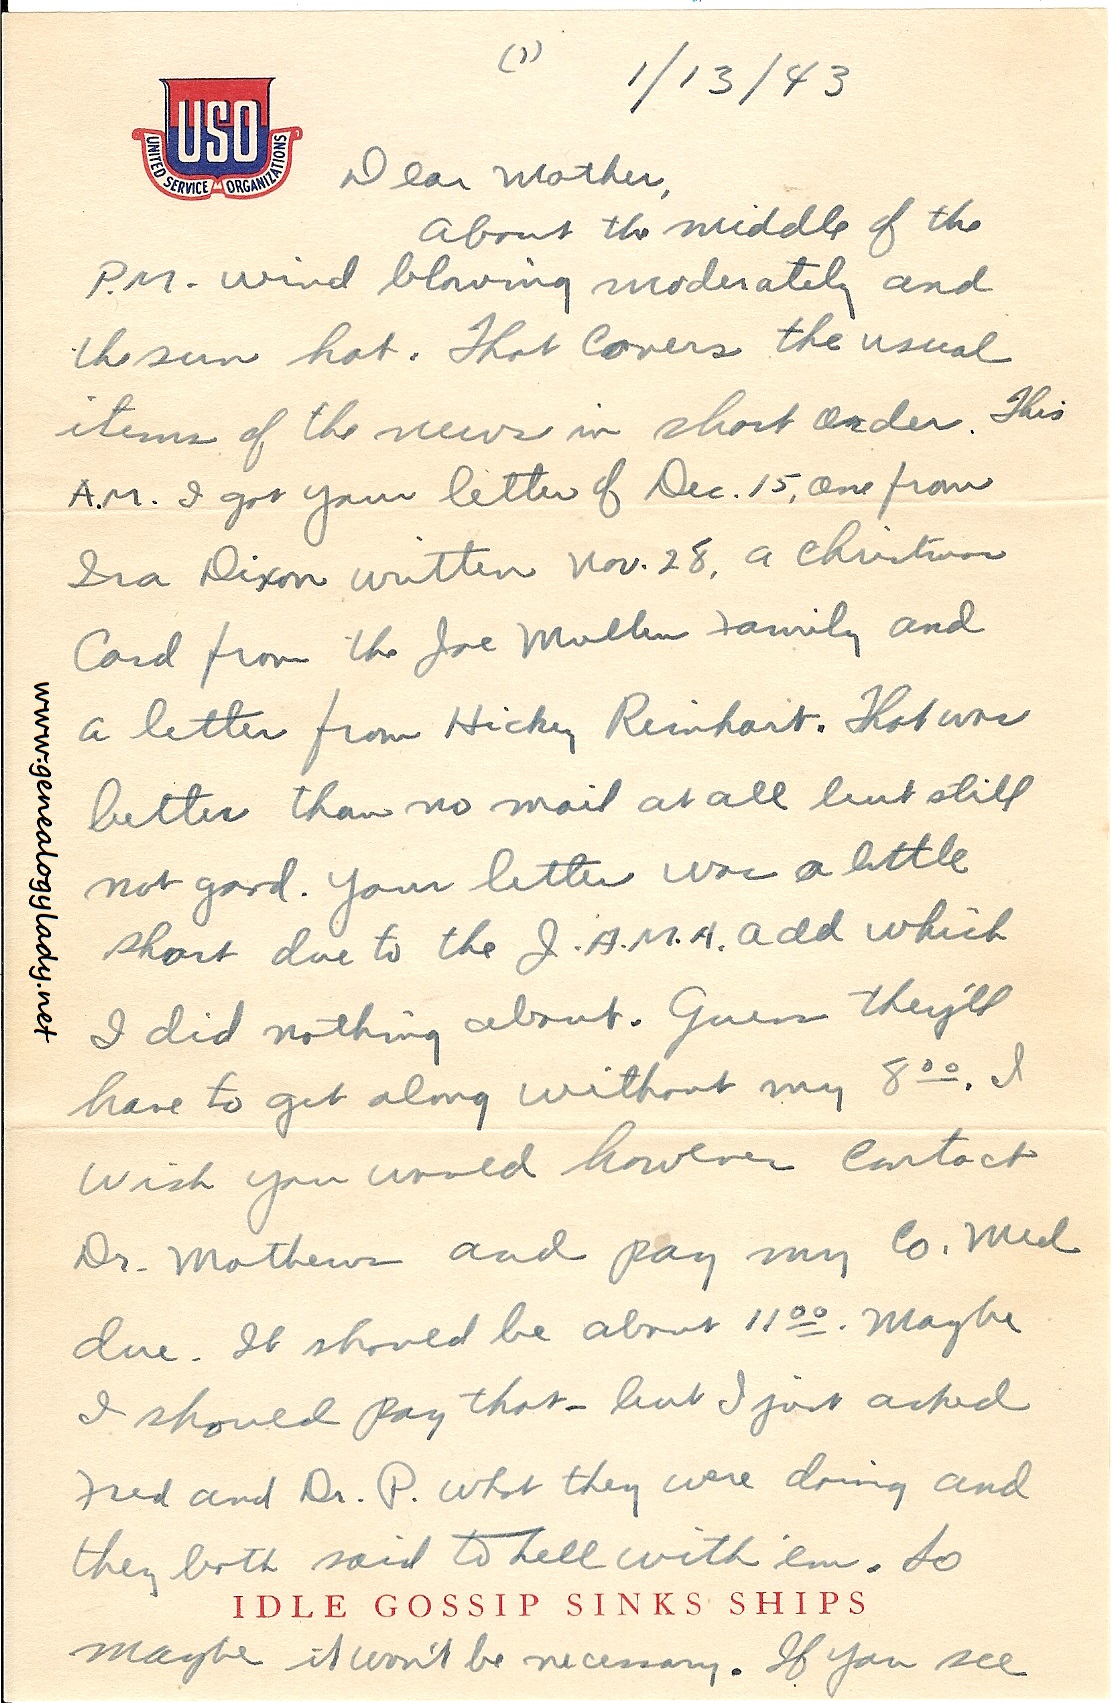 (1)
1/13/43
USO
UNITED SERVICE ORGANIZATIONS
Dear Mother,
About the middle of the
P.M. wind blowing moderately and
the sun hot. That covers the usual
items of the news in short order. This
A.M. I got your letter of Dec. 15, one from
Ira Dixon written Nov. 28, a Christmas
Card from the Joe Mullen Family and
a letter from Hickey Reinhart. That was
better than no mail at all but still
not good. Your letter was a little
short due to the J.A.M.A. add which
I did nothing about. Guess they'll
have to get along without my 8 00. I
wish you would however contact
Dr. Mathews and pay my Co. Med
due. It should be about 11 00. Maybe
I should pay that - but I just asked
Fred and Dr. P. what they were doing and
they both said to hell with 'em. So
IDLE GOSSIP SINKS SHIPS
maybe it won't be necessary. If you see
www.genealogylady.net